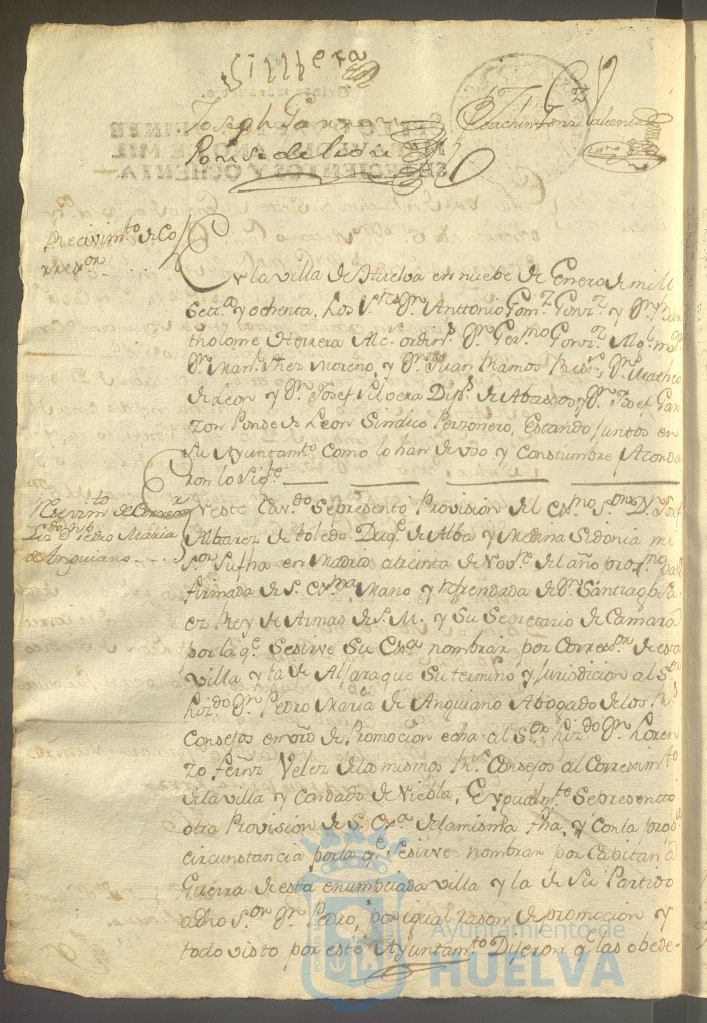 Silbera
Joseph Garzon
Ponse de leon
Joachin
Recivim.to de Co
rrex.or
En la villa de Huelva en nuebe de Enero de mill
Setz.os y ochenta, Los S.res D.n Anttonio Gom.z Gonz.z y D.n Bar
tholome de Herrera Alc. ordin.s D.n Ger.mo Gonz.z
D.n Man.l Moreno, y D.n Juan Ramos Rex.s, D.n Matheo
de Leon y D.n Josef Silvera Dip.s de Abastos y D.n Josef Gar
zon Ponse de Leon Sindico Perzonero, Estando juntos en
su Ayuntam.to como lo han de uso y Constumbre Acorda
ron lo Sig.te
Reservim.to de Correx.or
Liz.do D.n Pedro Maria
de Anguiano
En este Cav.do Sepresento Provision del Ex.mo S.or D.n Josf
Albarez de Toledo Duq.e de Alba y Medina Sidonia mi
S.or Su fha en Madrid a treinta de Nov.e del año prox.mo pa.do
firmada de S. Ex.ma Mano y Refrendada de D.n Santiago Sa
ez Rey de Armas de S. M. y Su Secretario de Camara
por la q.e Sesirve Su Ex.a nombrar por Correx.or de esta
villa y la de Aljaraque Su termino y Jurisdicion al S.or
Liz.do D.n Pedro Maria de Anguiano Abogado de los R.s
Consejos en vrd de Promocion echa al S.or Liz.do D.n Loren
zo Fernz Velez de los mismos R.s Consejos al Correxim.to
de la villa y Condado de Niebla, E ygualm.te Sepresento
otra Provision de S. Ex.a de la misma fha, y Con la prop.a
circunstancia por la q.e Sesirve nombrar por Capitan a
Guerra de esta enumbuada villa y la de Su Partido
a dho S.or D.n Pedro, por igual rason de promocion y
todo visto por este Ayuntam.to Dijeron q.e las obede-
Ayuntamiento de
HUELVA